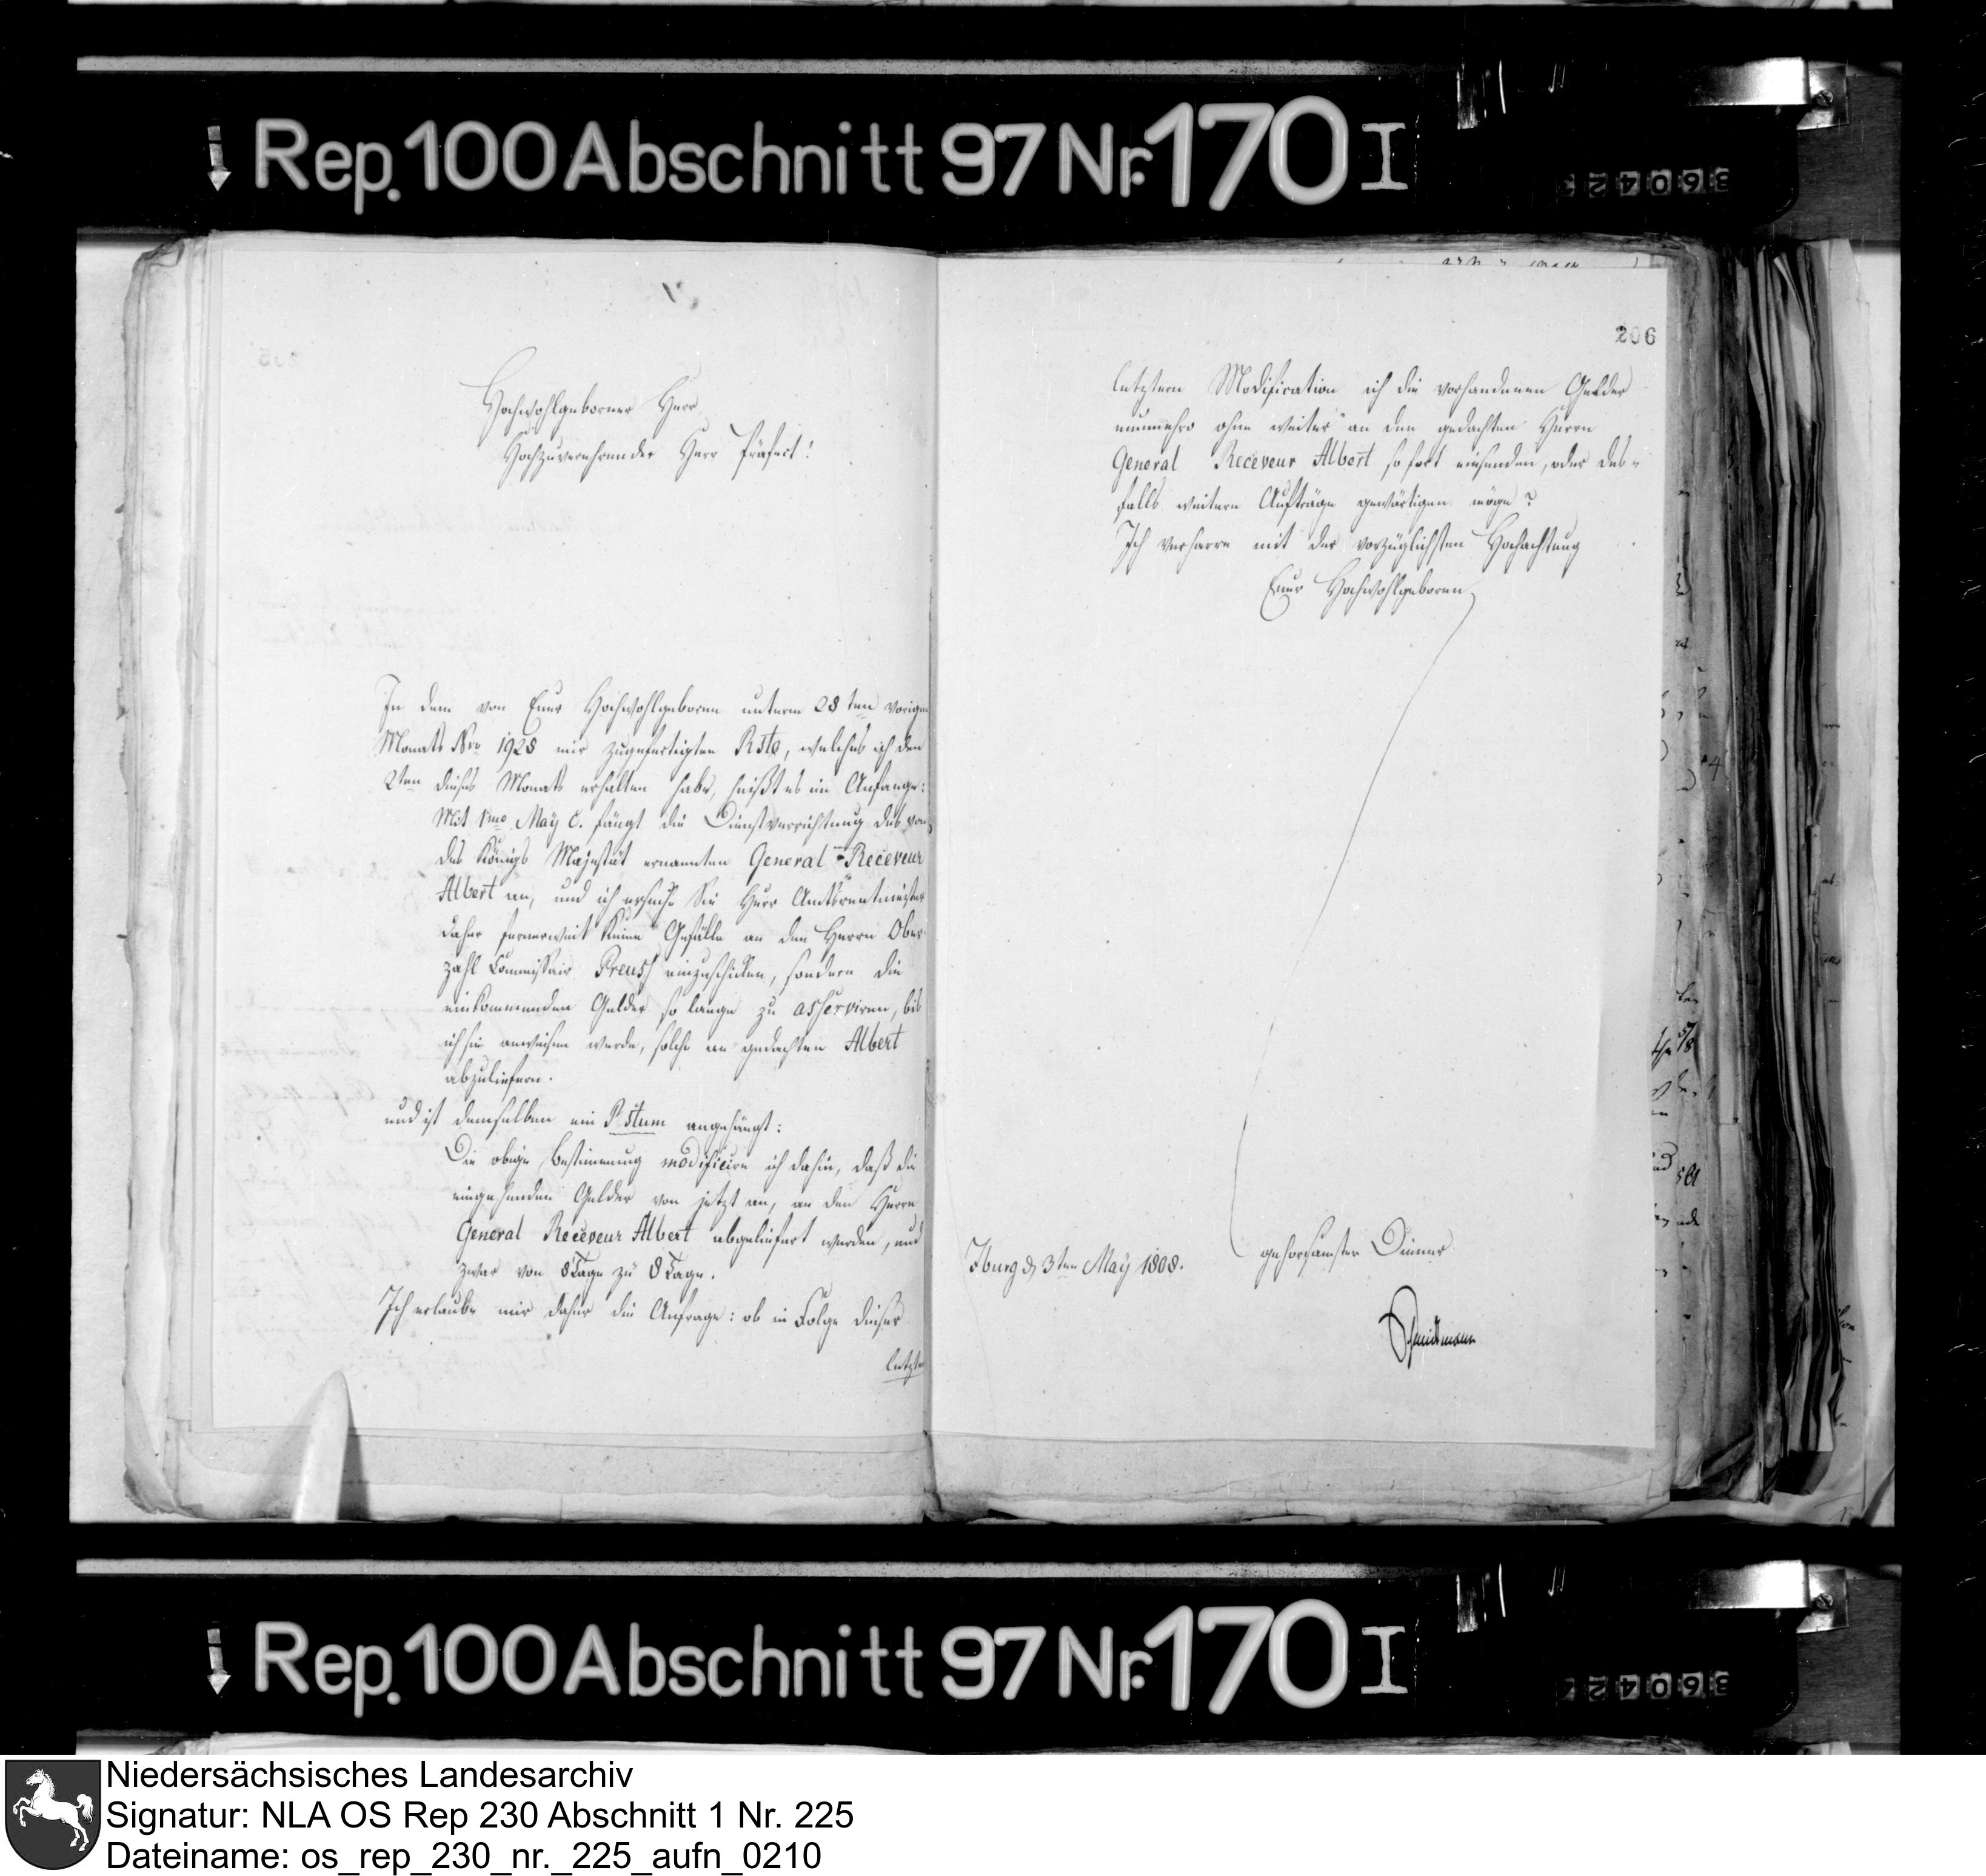 Rep. 100 Abschnitt 97 Nr. 170 I
36042
206
Hochwohlgeborner Herr
Hochzuverehrender Herr Präfect!
In dem von Euer Hochwohlgeboren unterm 28ten vorigen
Monats Nro 1928 mir zugefertigten Rsto, welches ich den
2ten dieses Monats erhalten habe, heißt es im Anfange:
Mit 1mo May c. fängt die Dienstverrichtung des von
des Königs Majestät ernannten General-Receveur
Albert an, und ich ersuche Sie Herr Amtsrentmeister
daher fernerweit keine Gefälle an den Herrn Ober-
zahl Commissair Preuss einzuschicken, sondern die
einkommenden Gelder so lange zu asserviren, bis
ich sie anweisen werde, solche an gedachten Albert
abzuliefern.
und ist demselben ein Pstum angehängt:
Die obige Bestimmung modificire ich dahin, daß die
eingehenden Gelder von jetzt an, an den Herrn
General Receveur Albert abgeliefert werden, und
zwar von 8 Tage zu 8 Tage.
Ich erlaube mir daher die Anfrage: ob in Folge dieser
letztern
letztern Modification ich die vorhandenen Gelder
nunmehro ohne weiter an den gedachten Herrn
General Receveur Albert sofort einsenden, oder des-
falls weitere Aufträge gewärtigen möge?
Ich verharre mit der vorzüglichsten Hochachtung
Euer Hochwohlgeboren
gehorsamster Diener
Iburg d 3ten May 1808.
Rep. 100 Abschnitt 97 Nr. 170 I
36042
Niedersächsisches Landesarchiv
Signatur: NLA OS Rep 230 Abschnitt 1 Nr. 225
Dateiname: os_rep_230_nr._225_aufn_0210